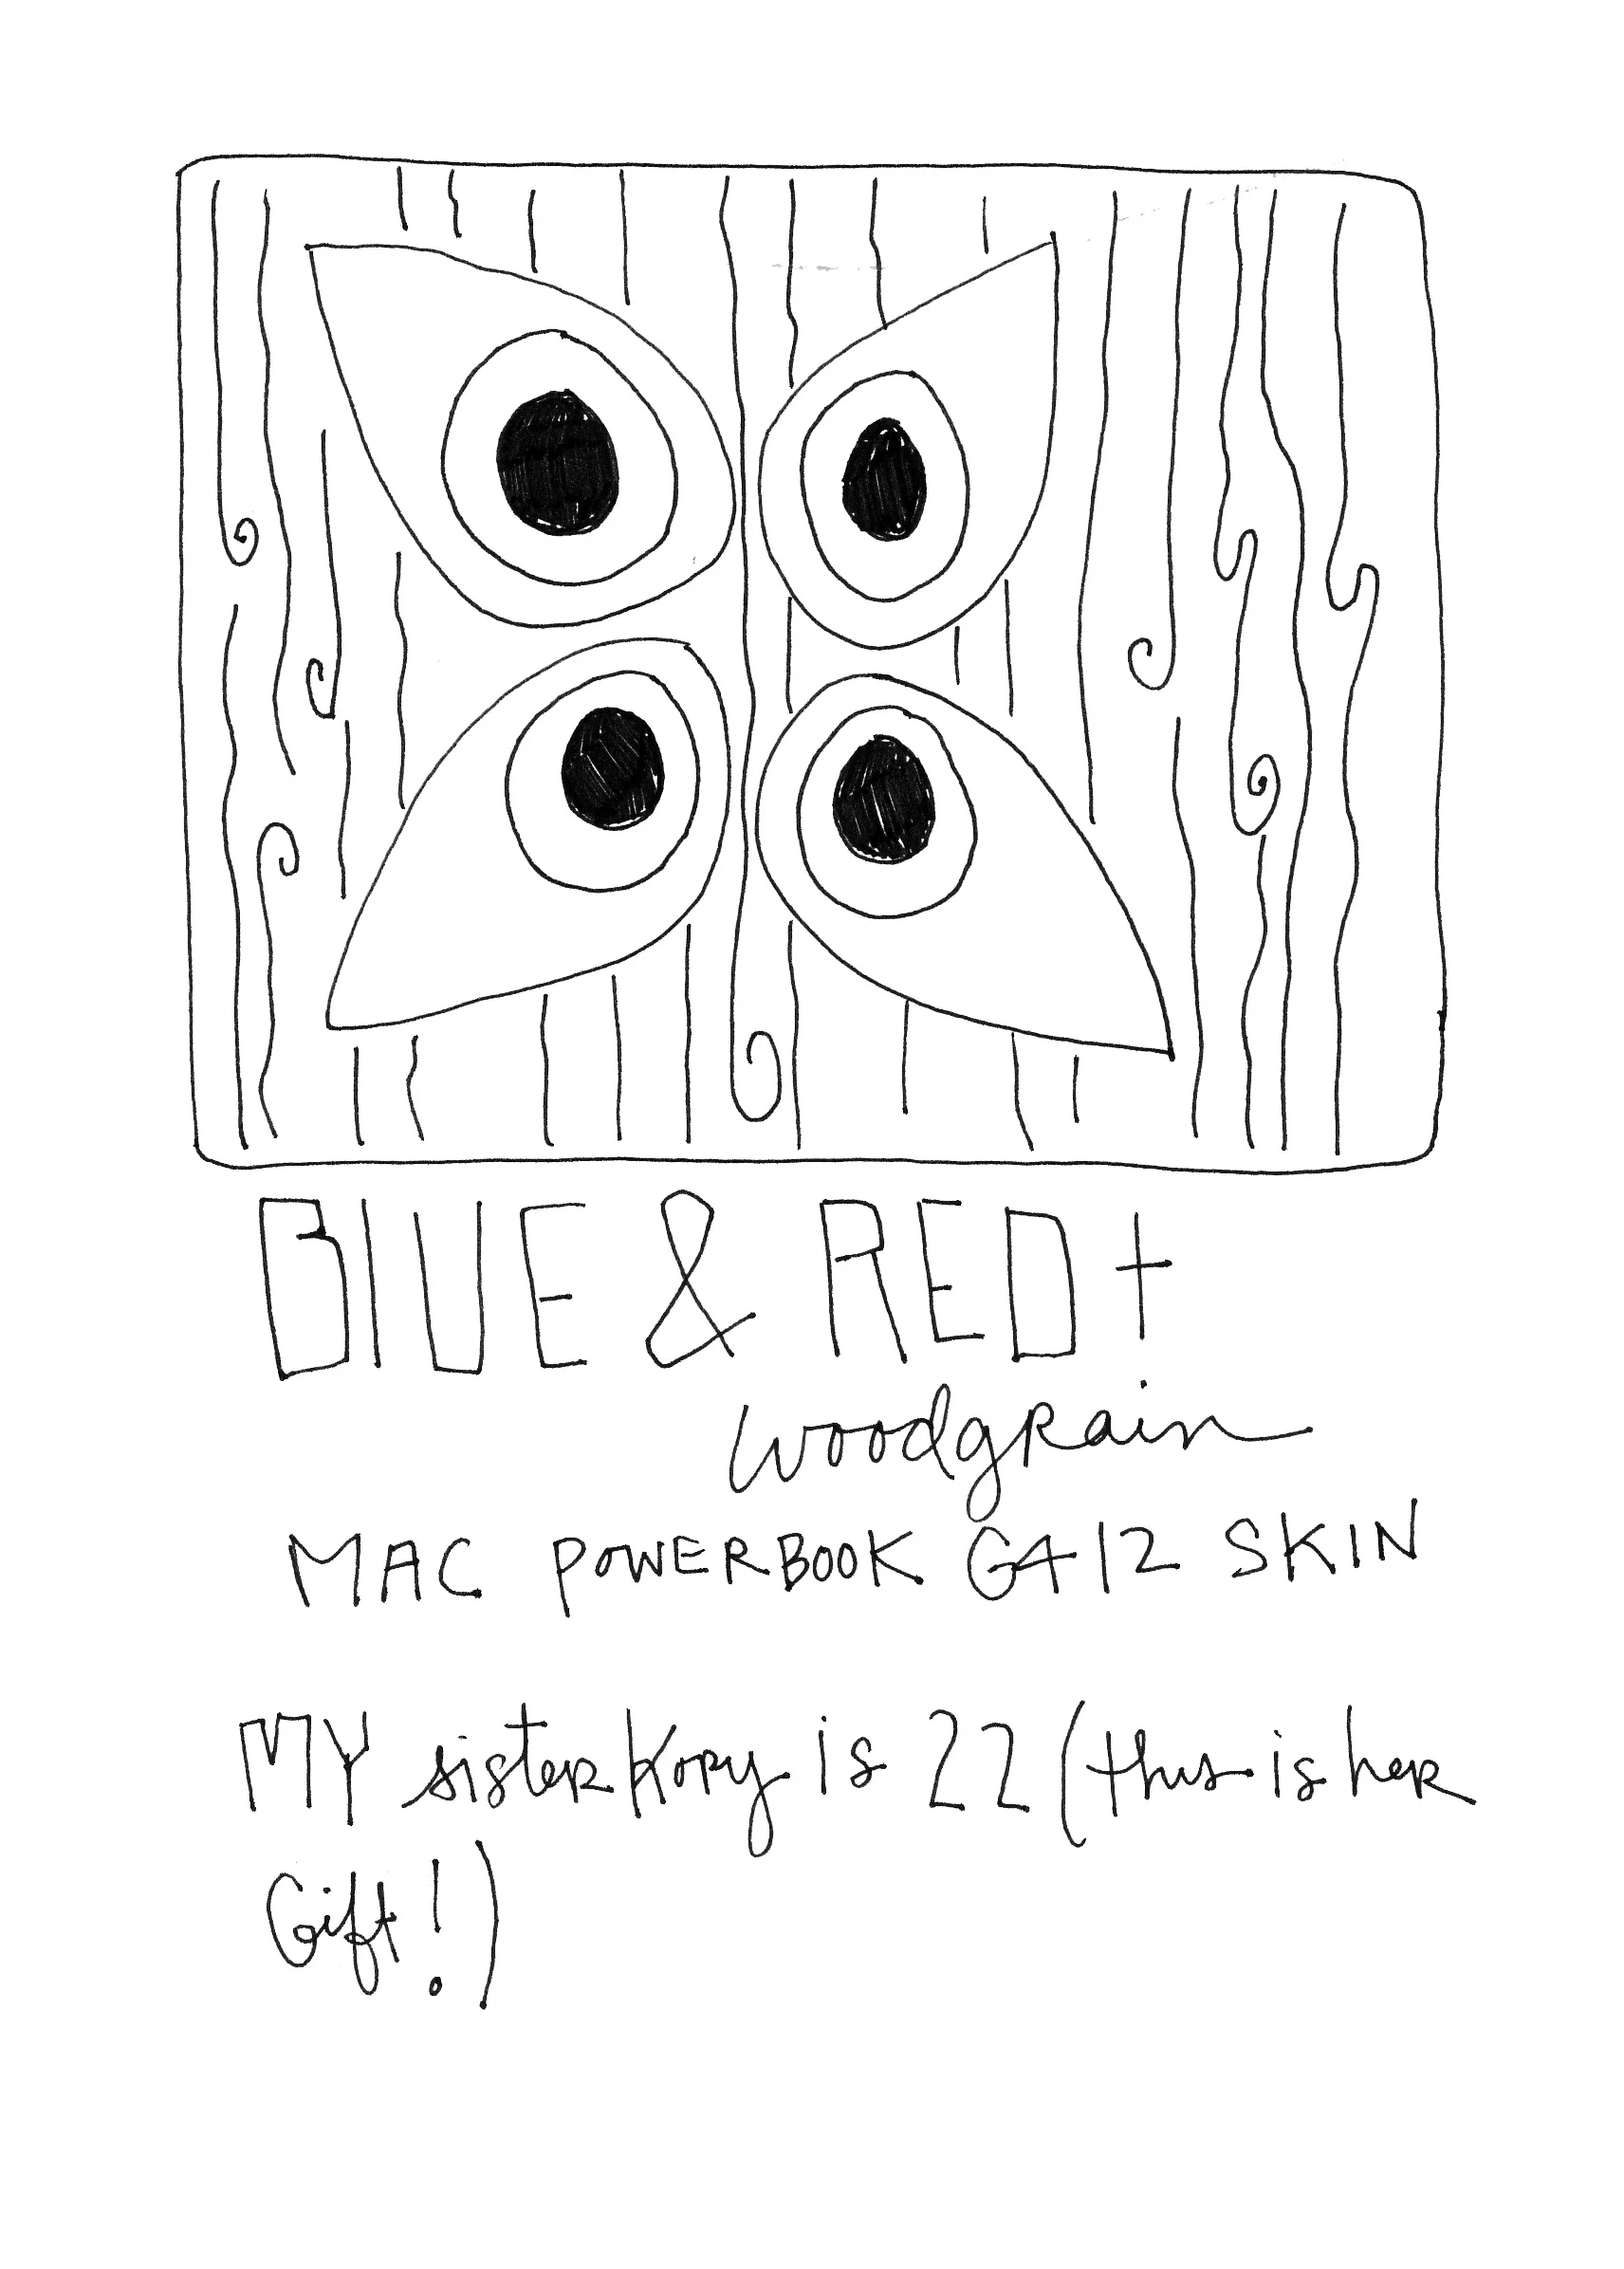 BlUE & RED +
woodgRain
MAC POWERBOOK G4 12 SKIN
MY sisteR Kory is 22 (this is heR
Gift!)